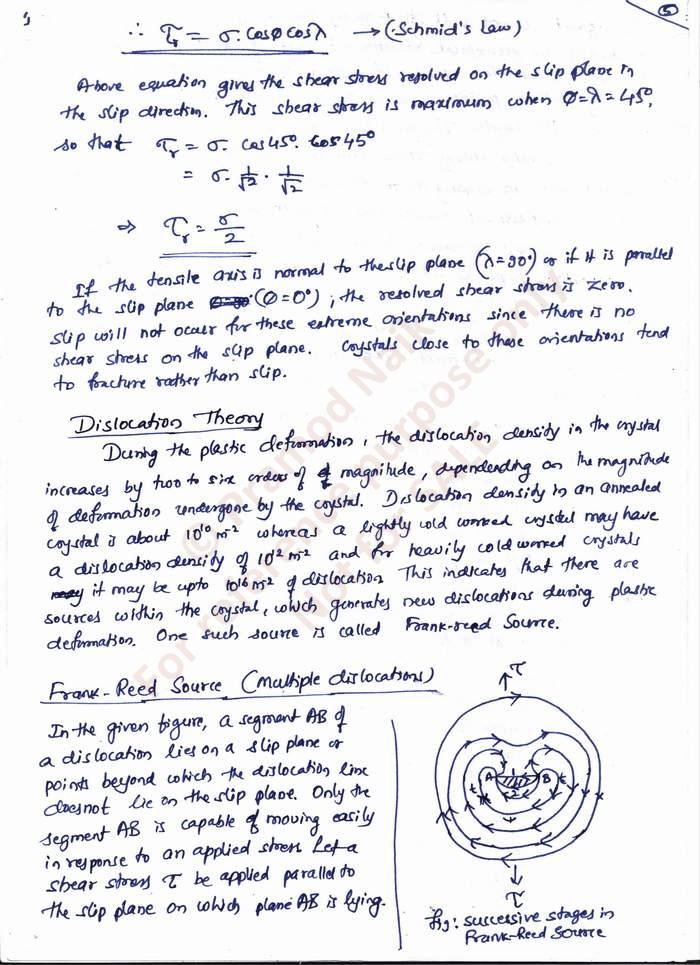 5
∴ τr = σ. cosφ cosλ → (Schmid's Law)
Above equation gives the shear stress resolved on the slip plane in
the slip direction. This shear stress is maximum when φ=λ=45°,
so that τr = σ. cos45°. cos45°
= σ. 1/√2 . 1/√2
⇒ τr = σ/2
If the tensile axis is normal to the slip plane (λ=90°) or if it is parallel
to the slip plane (φ=0°), the resolved shear stress is zero.
slip will not occur for these extreme orientations since there is no
shear stress on the slip plane. Crystals close to these orientations tend
to fracture rather than slip.
Dislocation Theory
During the plastic deformation, the dislocation density in the crystal
increases by two to six order of magnitude, dependending on the magnitude
of deformation undergone by the crystal. Dislocation density in an annealed
crystal is about 10¹⁰ m⁻² whereas a lightly cold worked crystal may have
a dislocation density of 10¹² m⁻² and for heavily cold worked crystals
it may be upto 10¹⁶ m⁻² of dislocation. This indicates that there are
sources within the crystal, which generates new dislocations during plastic
deformation. One such source is called Frank-reed Source.
Frank-Reed Source (Multiple dislocations)
In the given figure, a segment AB of
a dislocation lies on a slip plane or
points beyond which the dislocation line
doesnot lie on the slip plane. Only the
segment AB is capable of moving easily
in response to an applied stress Let a
shear stress τ be applied parallel to
the slip plane on which plane AB is lying.
τ
A 1 B
2
τ
fig: successive stages in
Frank-Reed Source
© Pramod Naik
For reference purpose only
Not for SALE